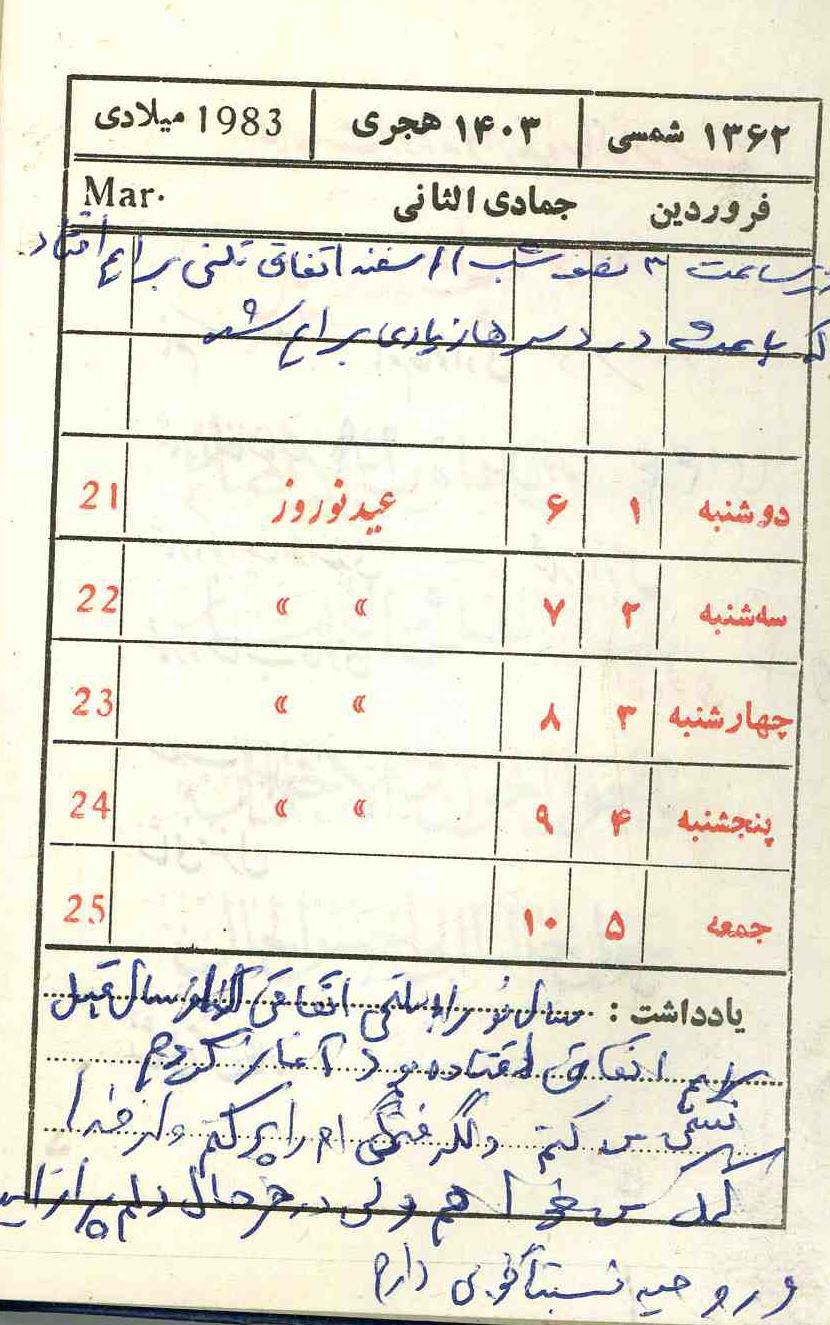 ۱۳۶۲ شمسی ۱۴۰۳ هجری 1983 میلادی
فروردین جمادی الثانی Mar.
در ساعت ۳ نصف شب ۱۱ اسفند اتفاق تلخی برایم افتاد
که باعث دردسرهای زیادی برایم شد
دوشنبه ۱ ۶ عید نوروز 21
سه‌شنبه ۲ ۷ » » 22
چهارشنبه ۳ ۸ » » 23
پنجشنبه ۴ ۹ » » 24
جمعه ۵ ۱۰ 25
یادداشت : سال نو را با تلخی اتفاقی که در سال قبل
برایم اتفاق افتاده بود آغاز کردم
می کنم و از خدا
کمک می خواهم ولی در هر حال دلم پر از امید
و روحیه نسبتاً خوبی دارم